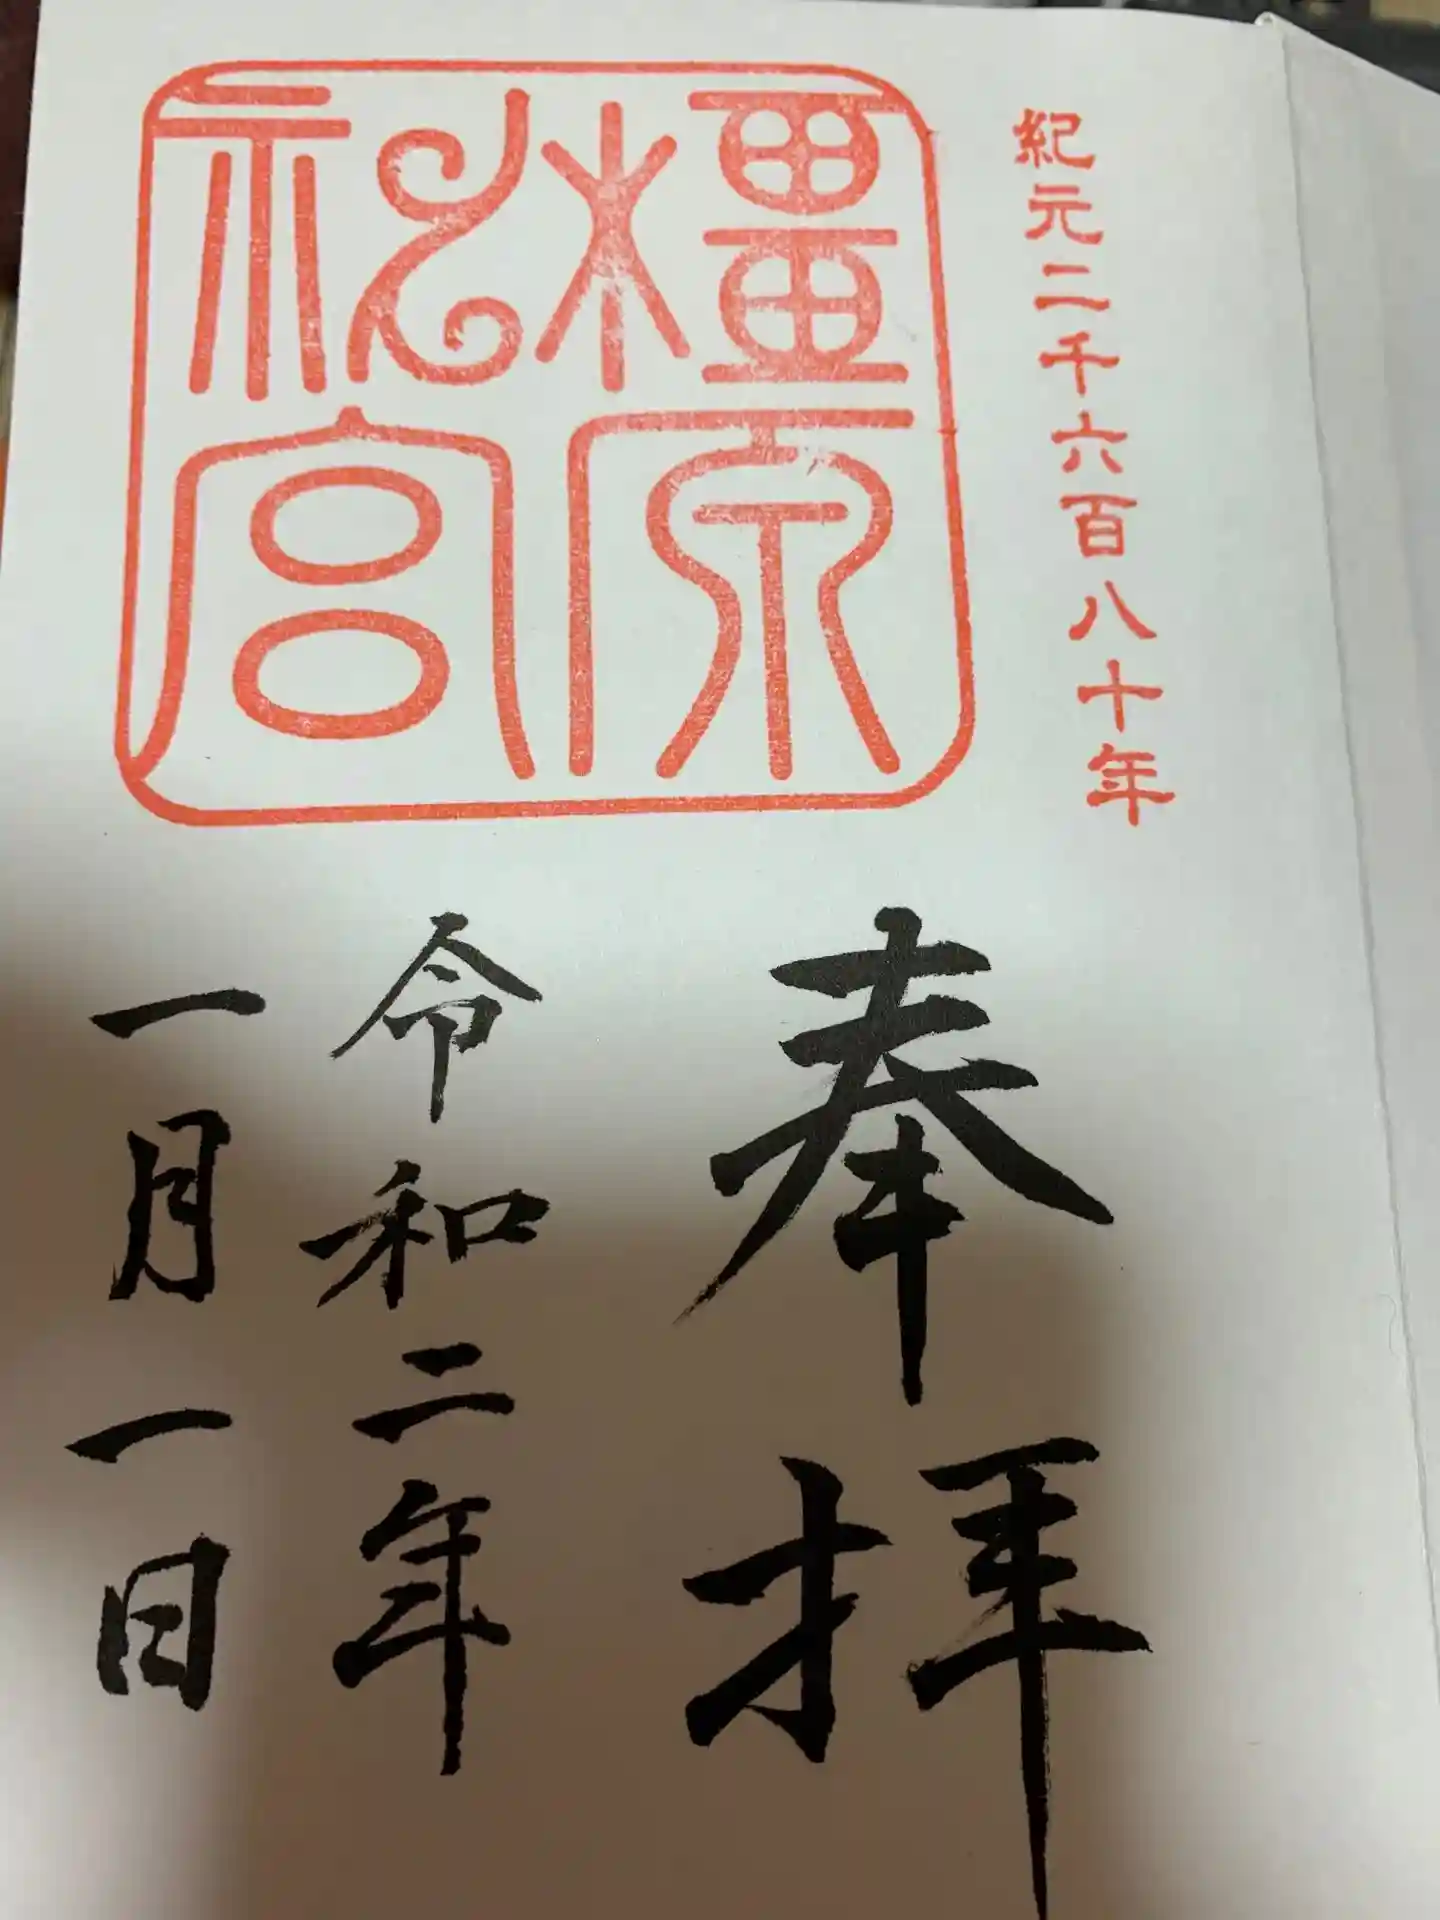 紀元二千六百八十年
橿原神宮
奉拝
令和二年
一月一日